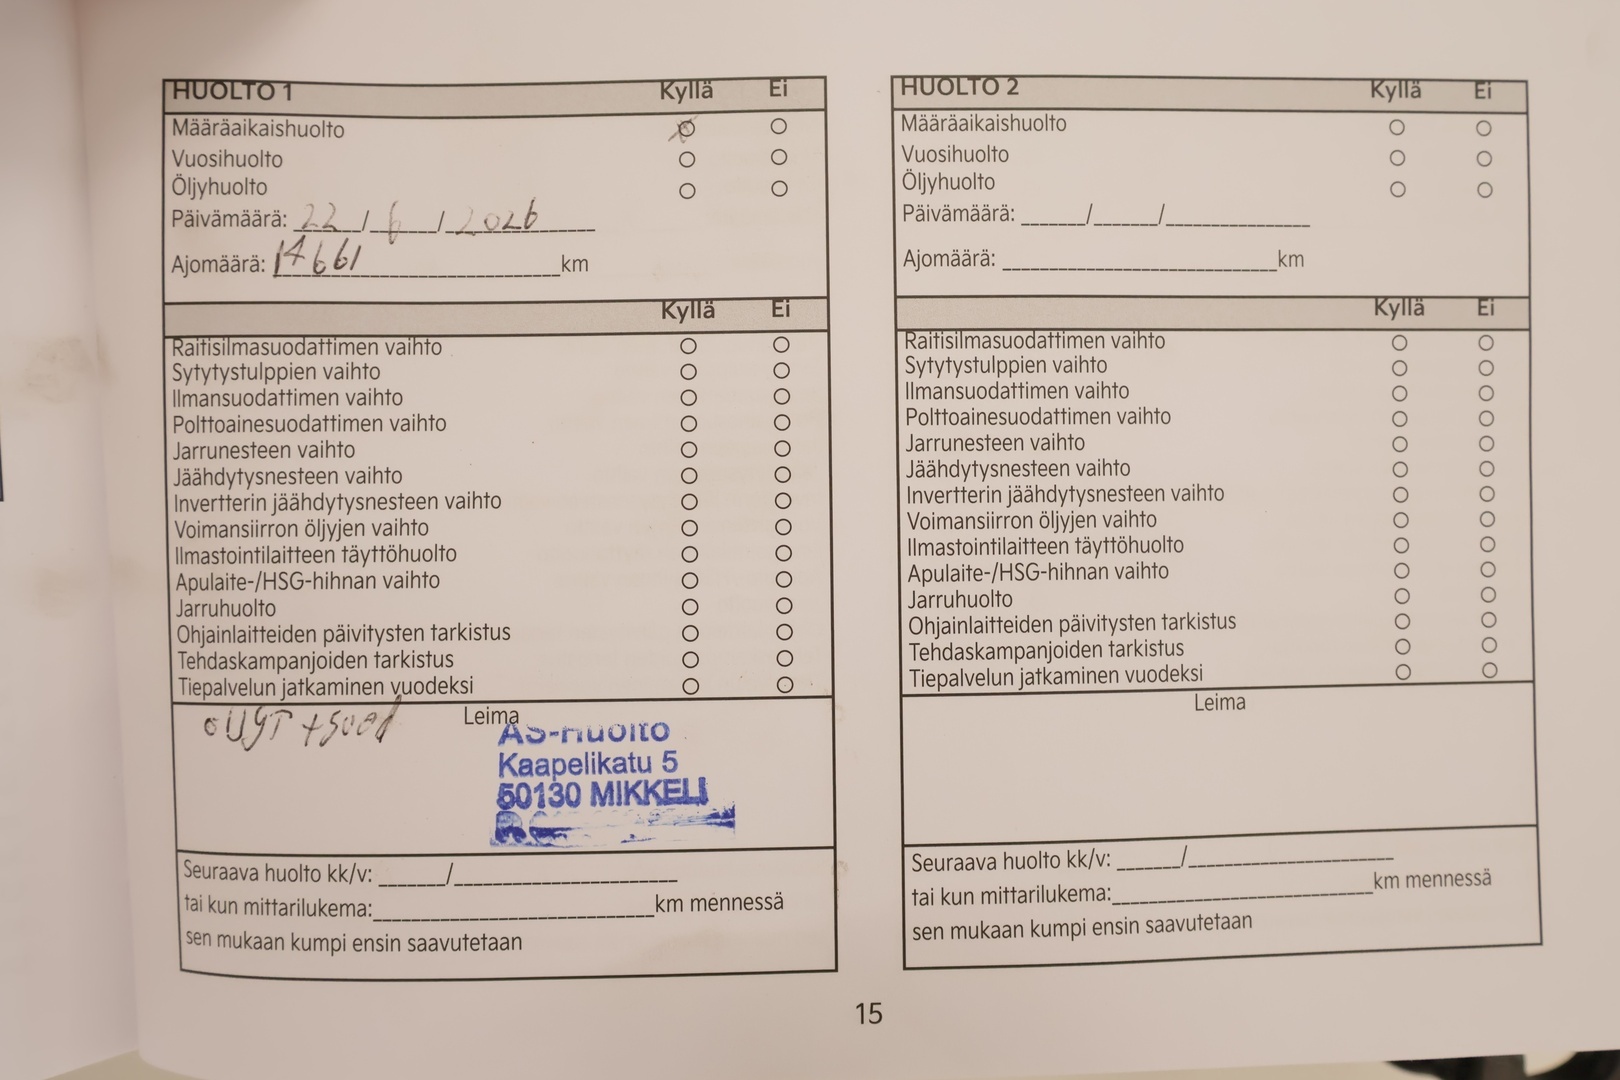 HUOLTO 1 Kyllä Ei
Määräaikaishuolto
Vuosihuolto
Öljyhuolto
Päivämäärä: 22/6/2026
Ajomäärä: 14661 km
Kyllä Ei
Raitisilmasuodattimen vaihto
Sytytystulppien vaihto
Ilmansuodattimen vaihto
Polttoainesuodattimen vaihto
Jarrunesteen vaihto
Jäähdytysnesteen vaihto
Invertterin jäähdytysnesteen vaihto
Voimansiirron öljyjen vaihto
Ilmastointilaitteen täyttöhuolto
Apulaite-/HSG-hihnan vaihto
Jarruhuolto
Ohjainlaitteiden päivitysten tarkistus
Tehdaskampanjoiden tarkistus
Tiepalvelun jatkaminen vuodeksi
Leima
AS-Huolto
Kaapelikatu 5
50130 MIKKELI
Seuraava huolto kk/v: ______/____________________
tai kun mittarilukema:_________________________km mennessä
sen mukaan kumpi ensin saavutetaan
HUOLTO 2 Kyllä Ei
Määräaikaishuolto
Vuosihuolto
Öljyhuolto
Päivämäärä: ______/______/_____________
Ajomäärä: _________________________km
Kyllä Ei
Raitisilmasuodattimen vaihto
Sytytystulppien vaihto
Ilmansuodattimen vaihto
Polttoainesuodattimen vaihto
Jarrunesteen vaihto
Jäähdytysnesteen vaihto
Invertterin jäähdytysnesteen vaihto
Voimansiirron öljyjen vaihto
Ilmastointilaitteen täyttöhuolto
Apulaite-/HSG-hihnan vaihto
Jarruhuolto
Ohjainlaitteiden päivitysten tarkistus
Tehdaskampanjoiden tarkistus
Tiepalvelun jatkaminen vuodeksi
Leima
Seuraava huolto kk/v: ______/___________________
tai kun mittarilukema:________________________km mennessä
sen mukaan kumpi ensin saavutetaan
15